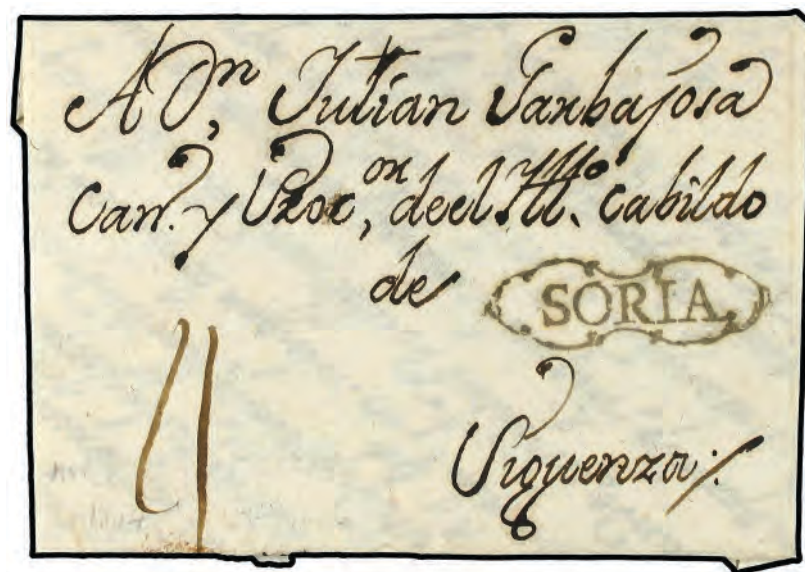 A Dn, Julian Garbajosa
Can. y Proc,or de el Illo. cabildo
de SORIA
Siguenza ·/.